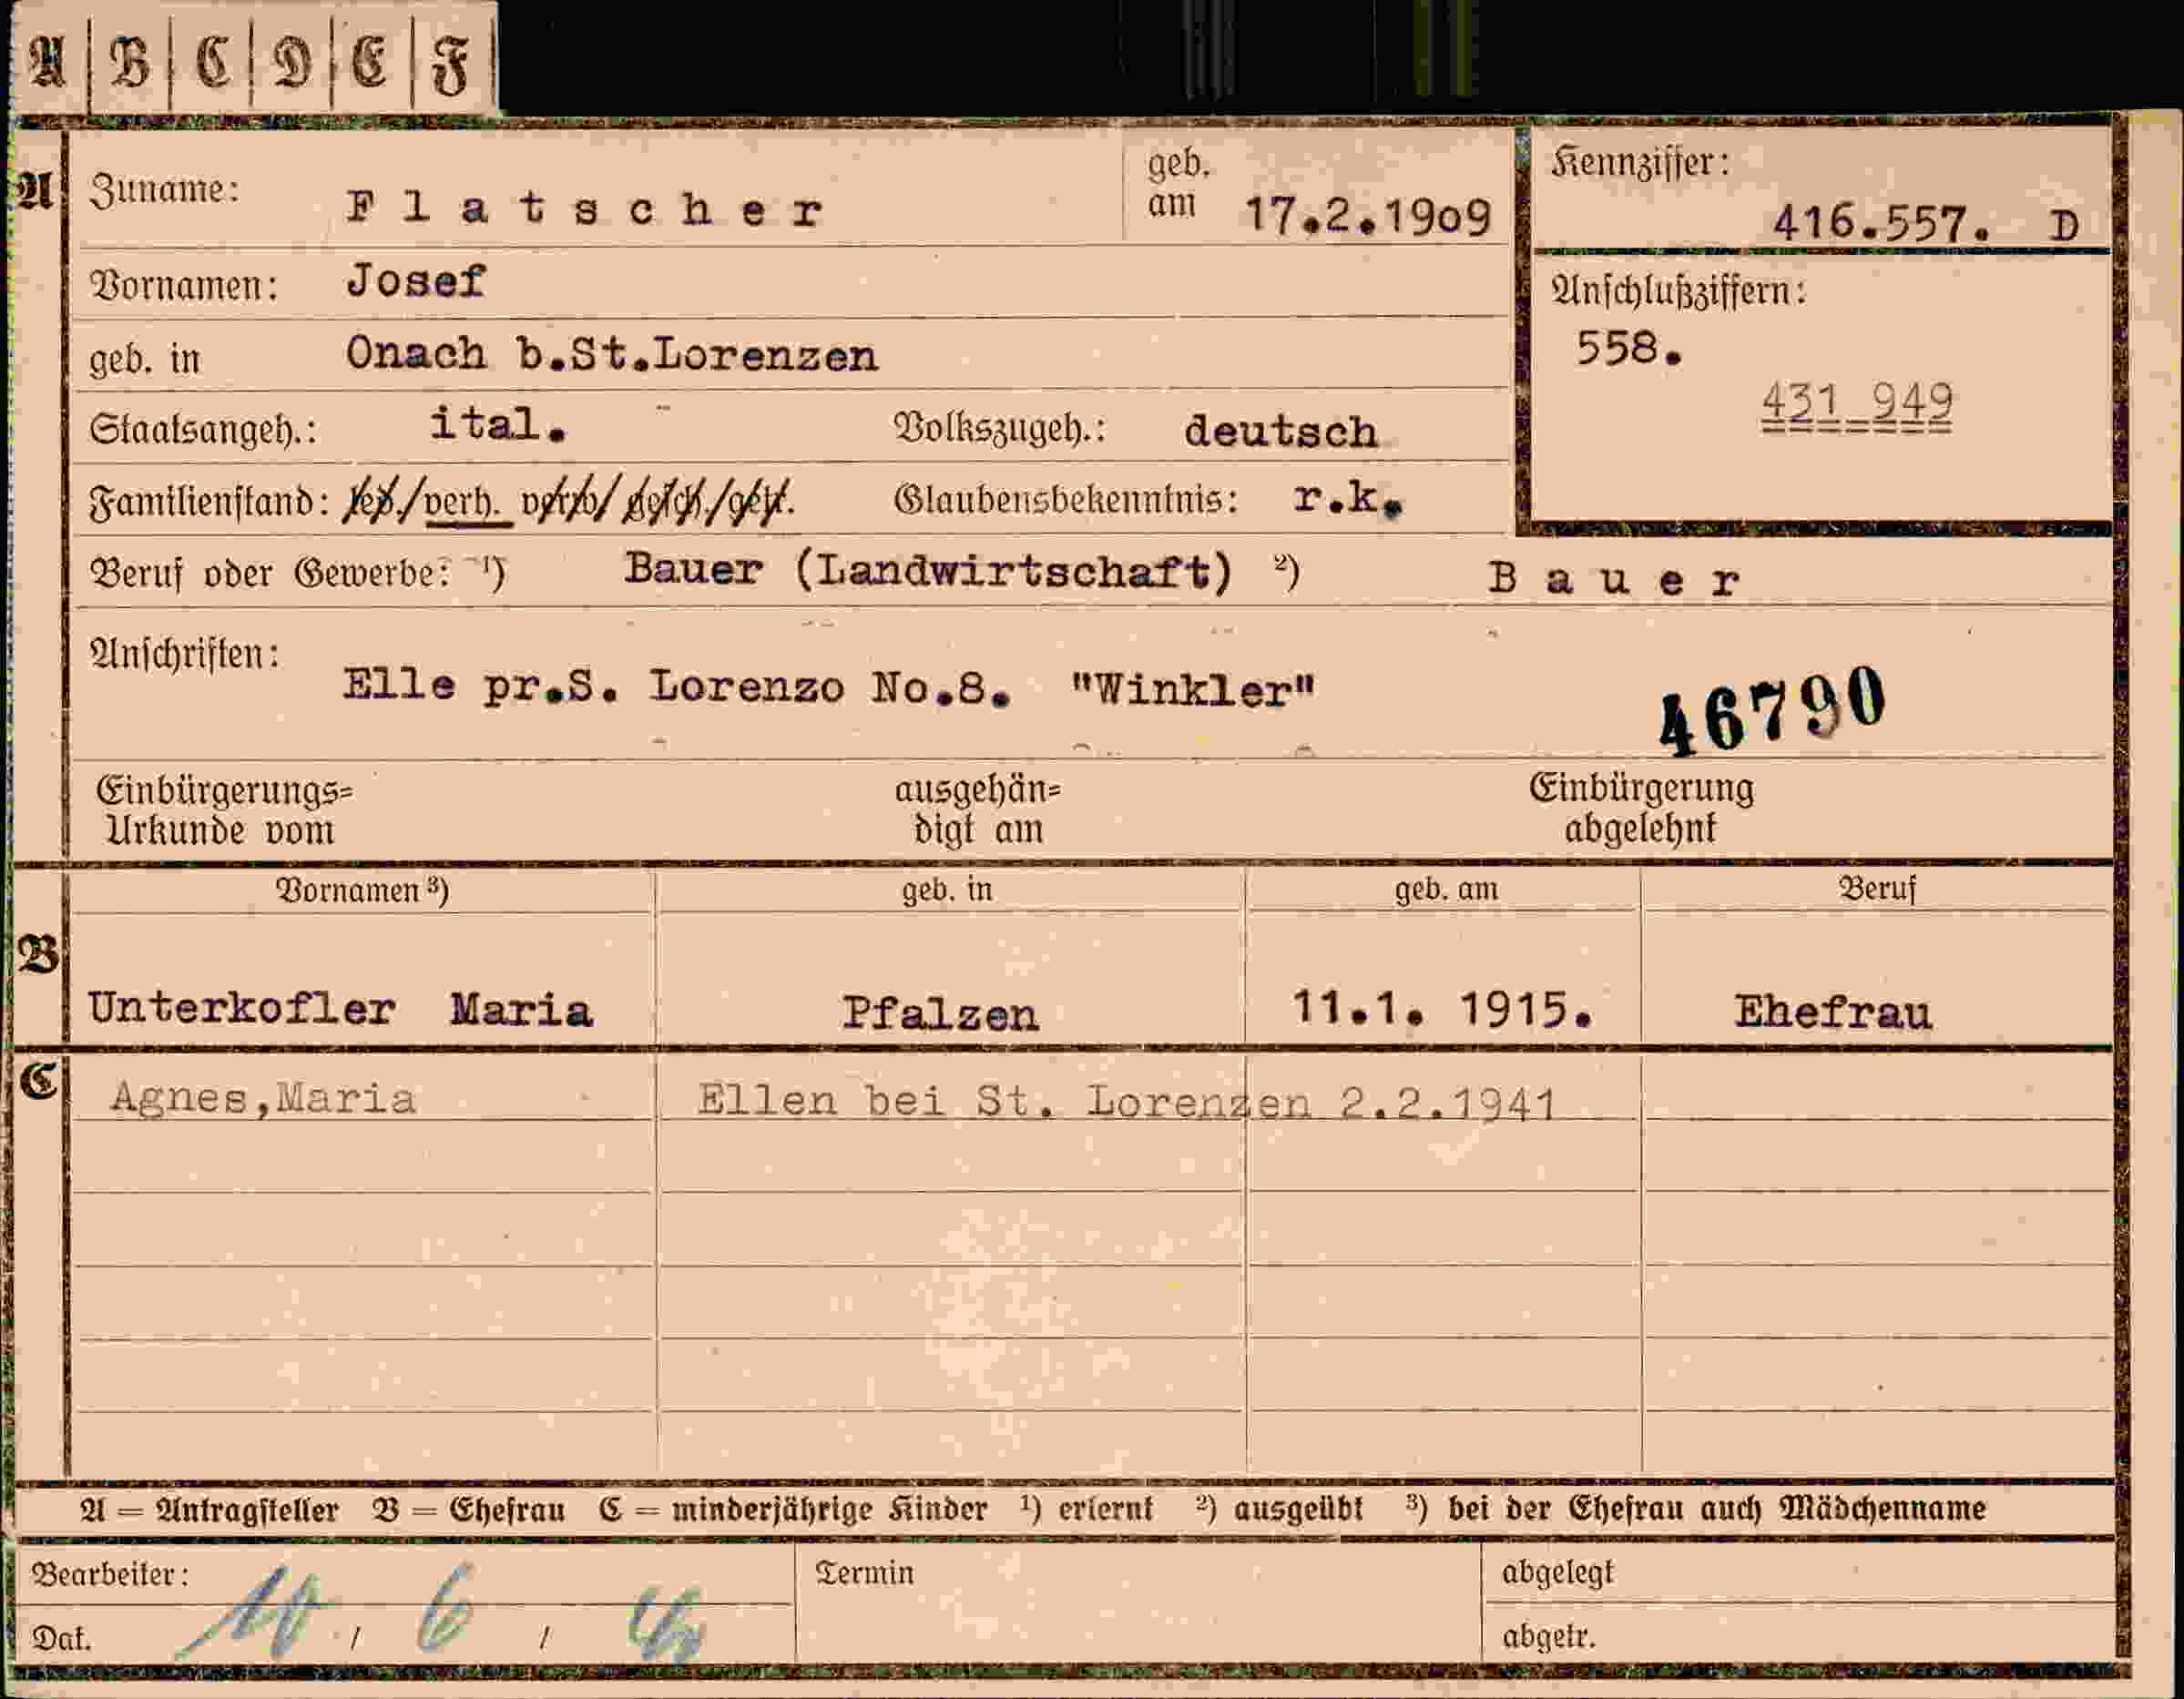 A | B | C | D | E | F
A Zuname: Flatscher geb. am 17.2.1909 Kennziffer: 416.557. D
Vornamen: Josef Anschlußziffern:
558.
geb. in Onach b.St.Lorenzen
431 949
Staatsangeh.: ital. Volkszugeh.: deutsch
Familienstand: led./verh. verw/ gesch./get. Glaubensbekenntnis: r.k.
Beruf oder Gewerbe: 1) Bauer (Landwirtschaft) 2) Bauer
Anschriften: Elle pr.S. Lorenzo No.8. "Winkler" 46790
Einbürgerungs= ausgehän= Einbürgerung
Urkunde vom digt am abgelehnt
Vornamen 3) geb. in geb. am Beruf
B Unterkofler Maria Pfalzen 11.1. 1915. Ehefrau
C Agnes,Maria Ellen bei St. Lorenzen 2.2.1941
A = Antragsteller B = Ehefrau C = minderjährige Kinder 1) erlernt 2) ausgeübt 3) bei der Ehefrau auch Mädchenname
Bearbeiter: Termin abgelegt
Dat. 10 / 6 / abgetr.